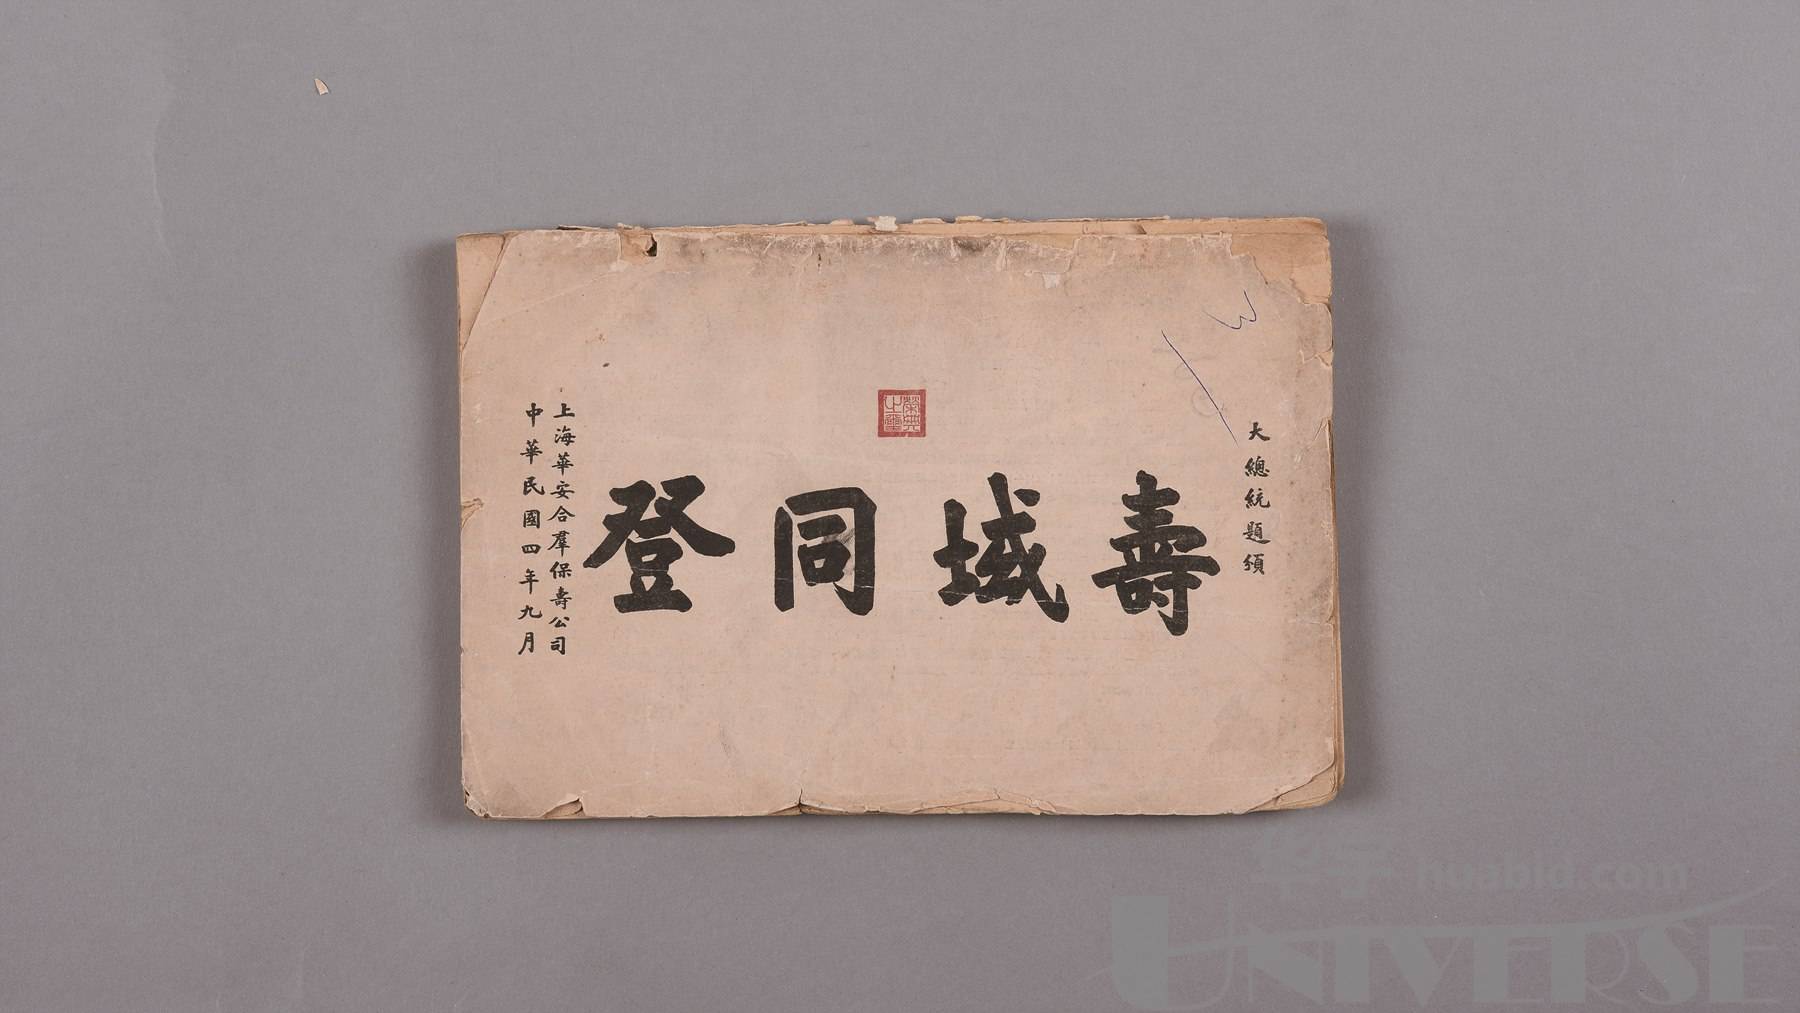 大總統題頒
壽域同登
榮典之璽
上海華安合羣保壽公司
中華民國四年九月
3
华宇 huabid.com
UNIVERSE